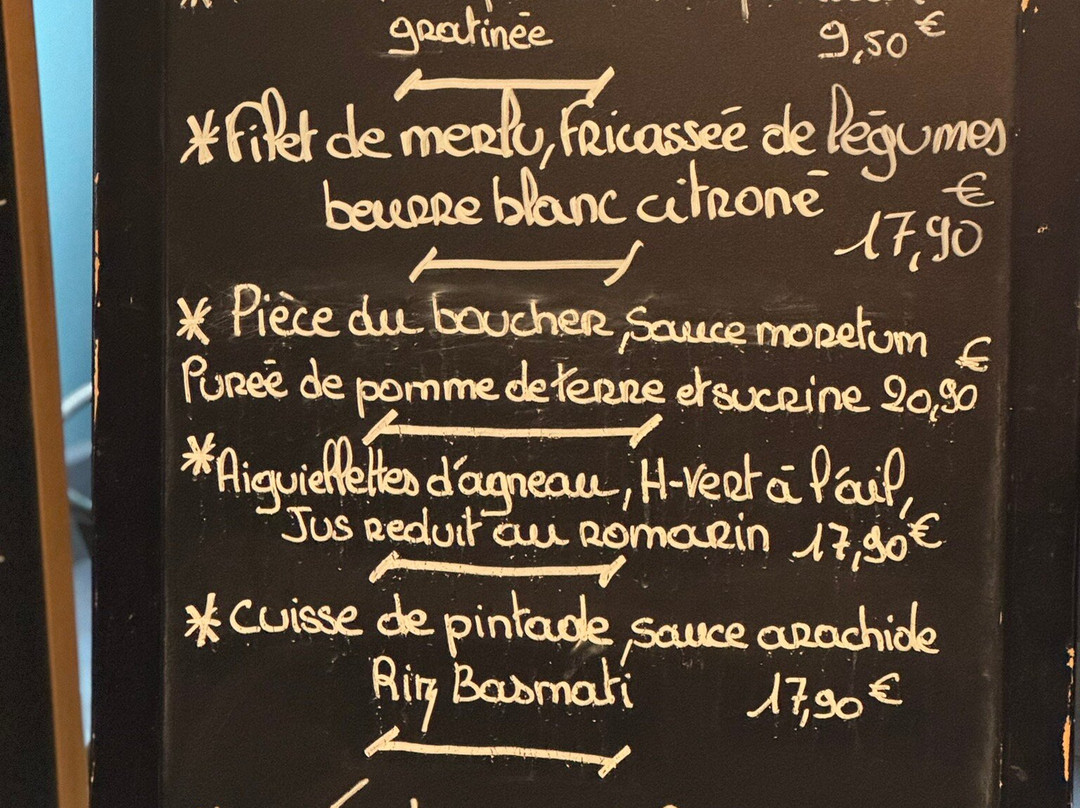 gratinée
9,50 €
* Filet de merlu, Fricassée de légumes
beurre blanc citroné
17,90 €
* Pièce du boucher, sauce moretum
Purée de pomme de terre et sucrine 20,90 €
* Aiguiellettes d'agneau, H-vert à l'ail,
Jus reduit au romarin 17,90 €
* Cuisse de pintade, sauce arachide
Riz Basmati 17,90 €